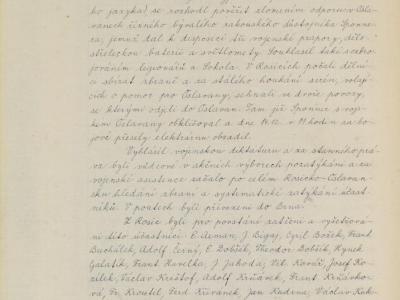 ho jazyka) se rozhodl pověřit zlomením odporu v Osla-
vanech účinně bývalého rakouského důstojníka Sponne-
ra, jemuž dal k disposici tři vojenské prapory, dělo-
střeleckou baterii a světlomety. Souhlasil také s ozbro-
jováním legionářů a Sokola. V Rosicích počali dělní-
ci sbírat zbraně a za stálého houkání sirén, volají-
cích o pomoc pro Oslavany, sehnali ve dvoře povozy,
se kterými odjeli do Oslavan. Tam již Sponner s voj-
skem Oslavany obkličoval a dne 14.12. v 11 hodin za bo-
jové přesily elektrárnu obsadil.
Vyhlásil vojenskou diktaturu a za stanného prá-
va byli vědcové v akčních výborech pozatýkáni a za
vojenské asistence začalo po celém Rosicko-Oslavan-
sku hledání zbraní a systematické zatýkání účast-
níků. V poutech byli přivezeni do Brna.
Z Rosic byli pro povstání zatčeni a vyšetřová-
ni tito účastníci: E. Axman, J. Bigaj, Cyril Bošek, Frant.
Buchálek, Adolf Černý, E. Dobšík, Theodor Dobšík, Hynek
Galatík, Frant. Havelka, J. Jahoda, Vít. Kovář, Josef Ko-
zílek, Václav Krištof, Adolf Křižánek, Frant. Křižánkov-
ká, Fr. Kroutil, Ferd. Křivánek, Jan Kudrna, Václav Kuk-